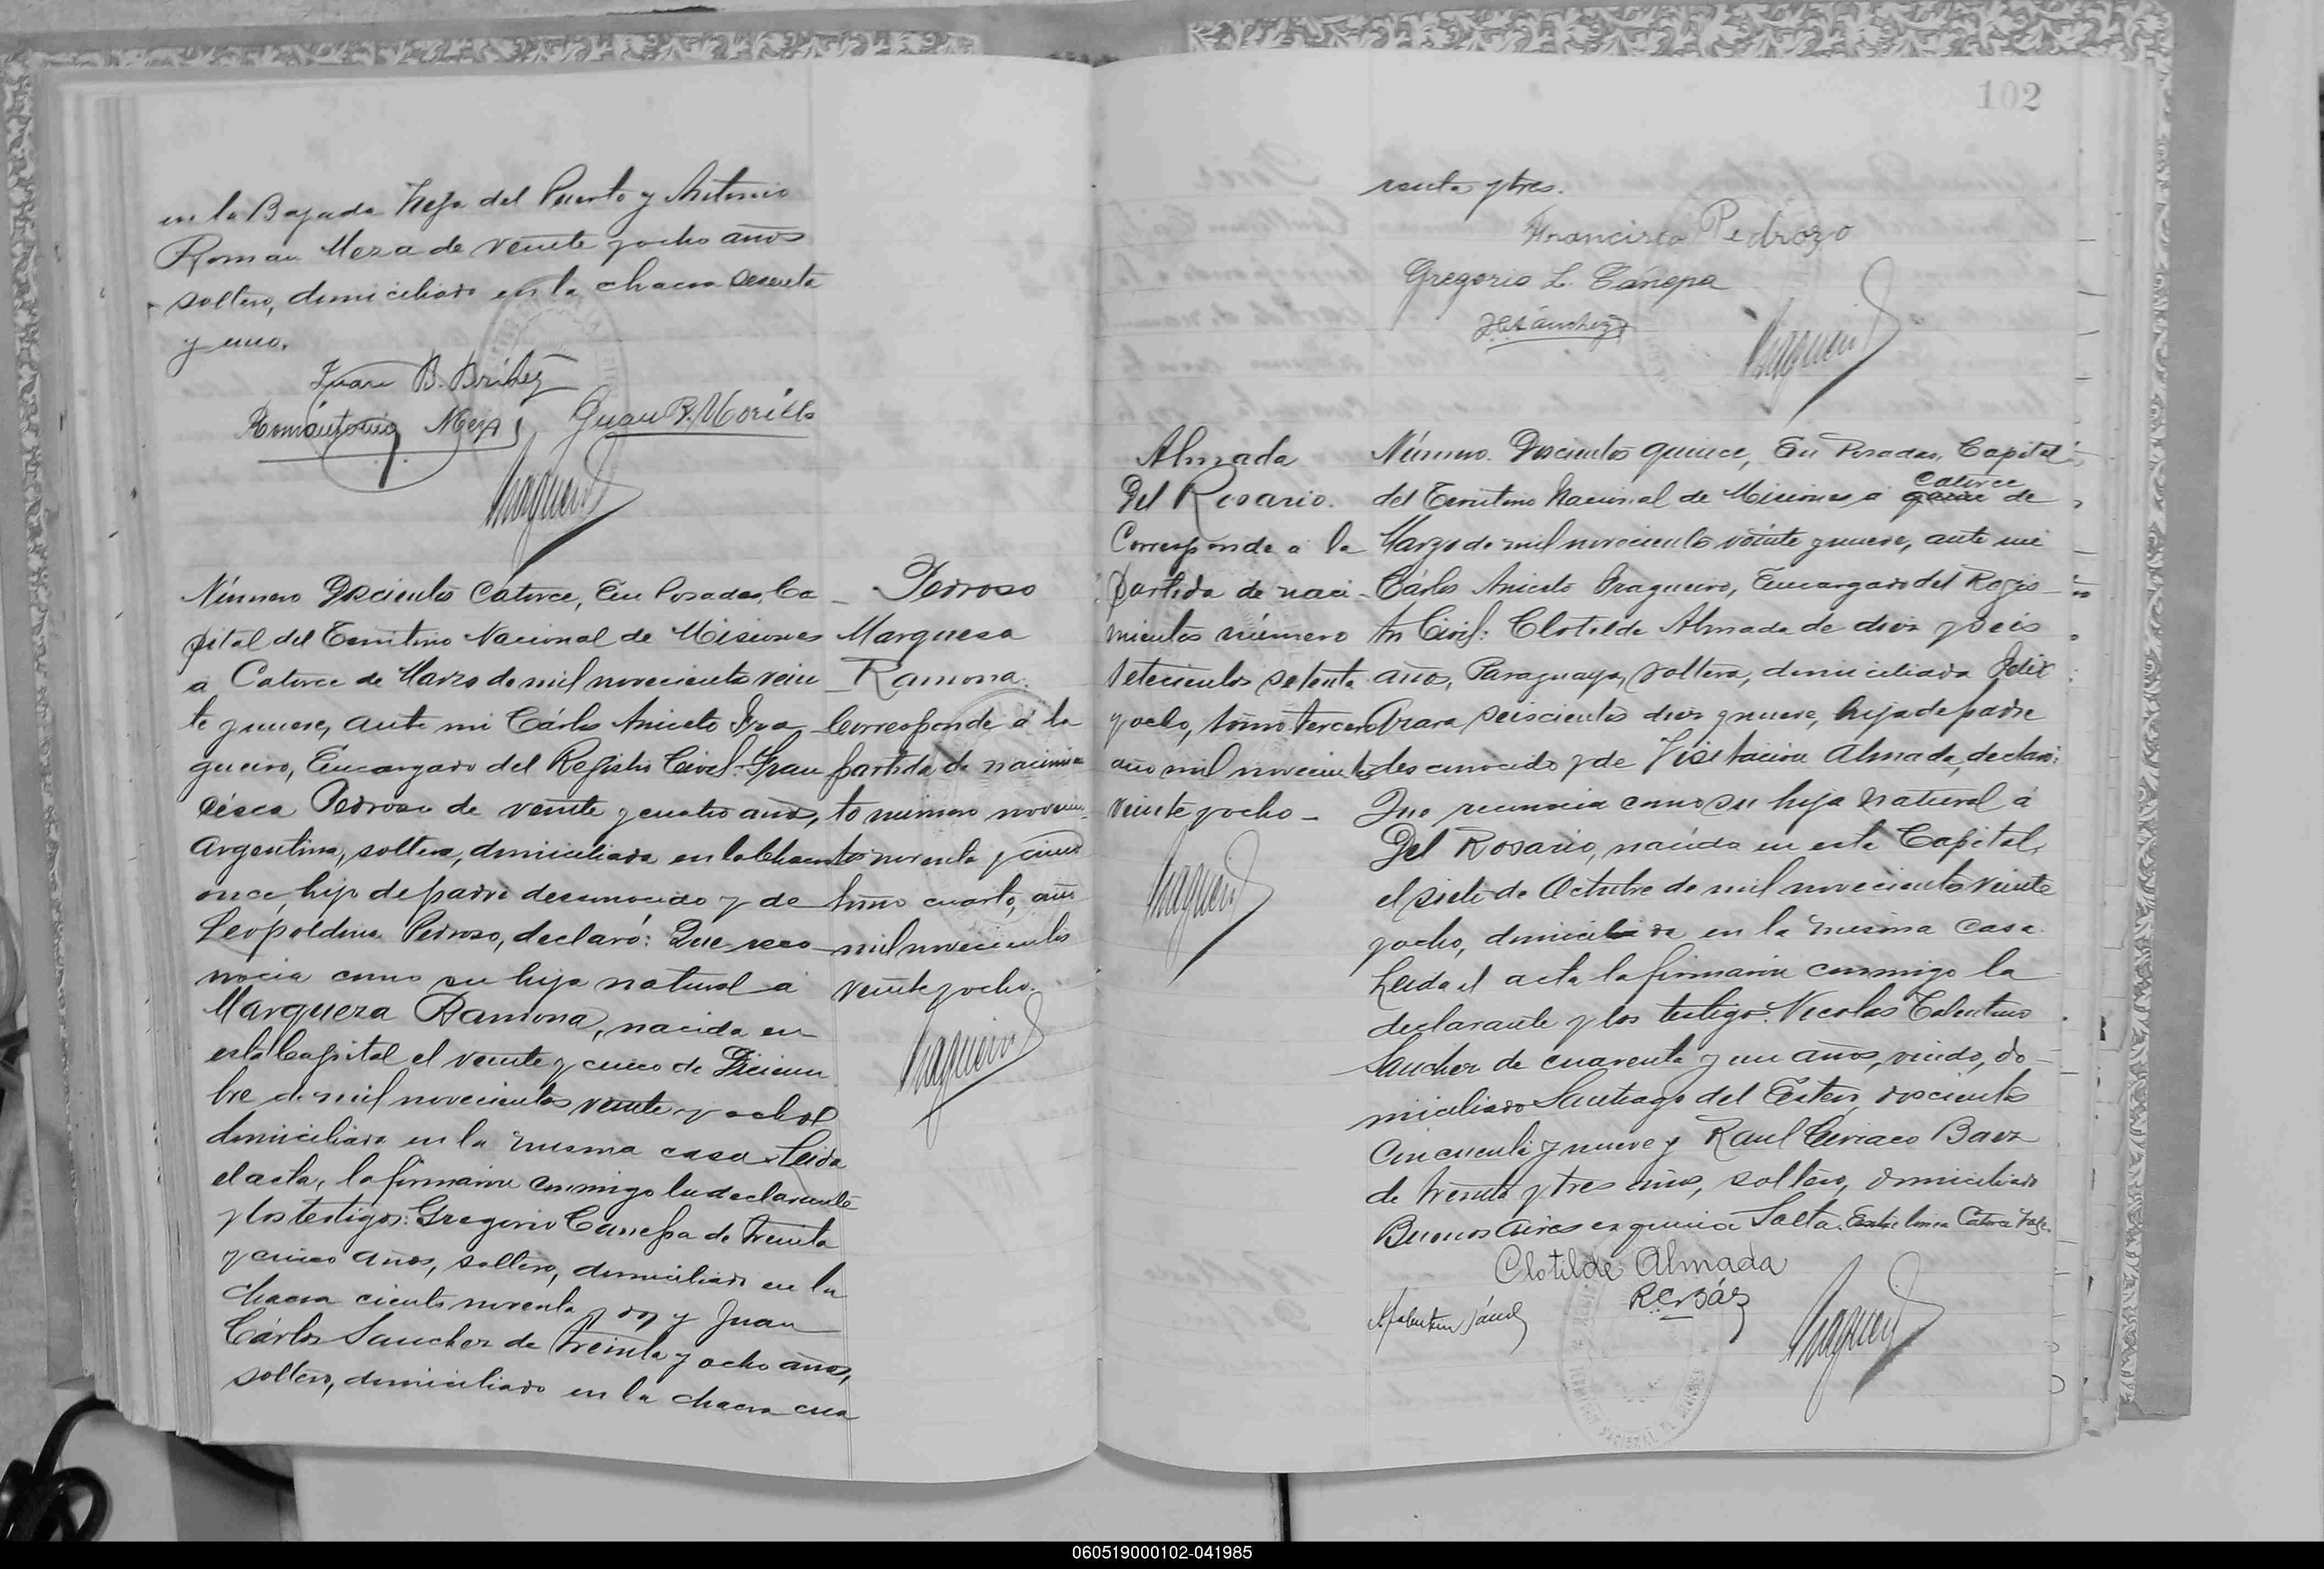 en la Bajada Vieja del Puerto y Antonio
Roman Meza de veinte y ocho años
soltero, domiciliado en la chacra sesenta
y uno.
Juan B. Brihez
Romántonio Meza Juan R. Morillo
Número Doscientos Catorce, En Posadas, Ca
pital del Territorio Nacional de Misiones
a Catorce de Marzo de mil novecientos vein
te y nueve, ante mi Cárlos Aniceto Fra
gueiro, Encargado del Registro Civil: Fran
cisca Pedroso de veinte y cuatro años,
Argentina, soltera, domiciliada en la Chacra
once, hija de padre desconocido y de
Leopoldina Pedroso, declaró: Que reco
nocia como su hija natural a
Marqueza Ramona, nacida en
esta Capital el veinte y cinco de Diciem
bre de mil novecientos veinte y ocho
domiciliada en la misma casa. Leida
el acta, la firmaron conmigo la declarante
y los testigos: Gregorio Canepa de treinta
y cinco años, soltero, domiciliado en la
chacra ciento noventa y dos y Juan
Cárlos Sanchez de treinta y ocho años,
soltero, domiciliado en la chacra cua
Pedroso
Marquesa
Ramona.
Corresponde á la
partida de nacimien
to número novecien
tos noventa y cinco
tomo cuarto, año
mil novecientos
veinte y ocho.
102
renta y tres.
Francisca Pedrozo
Gregorio L. Cánepa
J.C. Sánchez
Almada
Del Rosario.
Corresponde a la
partida de naci-
mientos número
setecientos setenta
y ocho, tomo tercero
año mil novecientos
veinte y ocho -
Número Doscientos quince, En Posadas, Capital
del Territorio Nacional de Misiones a Catorce de
Marzo de mil novecientos veinte y nueve, ante mi
Cárlos Aniceto Fragueiro, Encargado del Regis-
tro Civil: Clotilde Almada de diez y seis
años, Paraguaya, soltera, domiciliada Felix
Azara seiscientos diez y nueve, hija de padre
desconocido y de Visitacion Almada, declaró:
Que reconocia como su hija natural á
Del Rosario, nacida en esta Capital,
el siete de Octubre de mil novecientos veinte
y ocho, domiciliada en la misma casa.
Leida el acta la firmaron conmigo la
declarante y los testigos: Nicolas Tolentino
Sanchez de cuarenta y un años, viudo, do-
miciliado Santiago del Estero, doscientos
cincuenta y nueve y Raul Ciriaco Baez
de treinta y tres años, soltero, domiciliado
Buenos Aires esquina Salta. Entre linea Catorce Vale.
Clotilde Almada
R.C. Báez
060519000102-041985